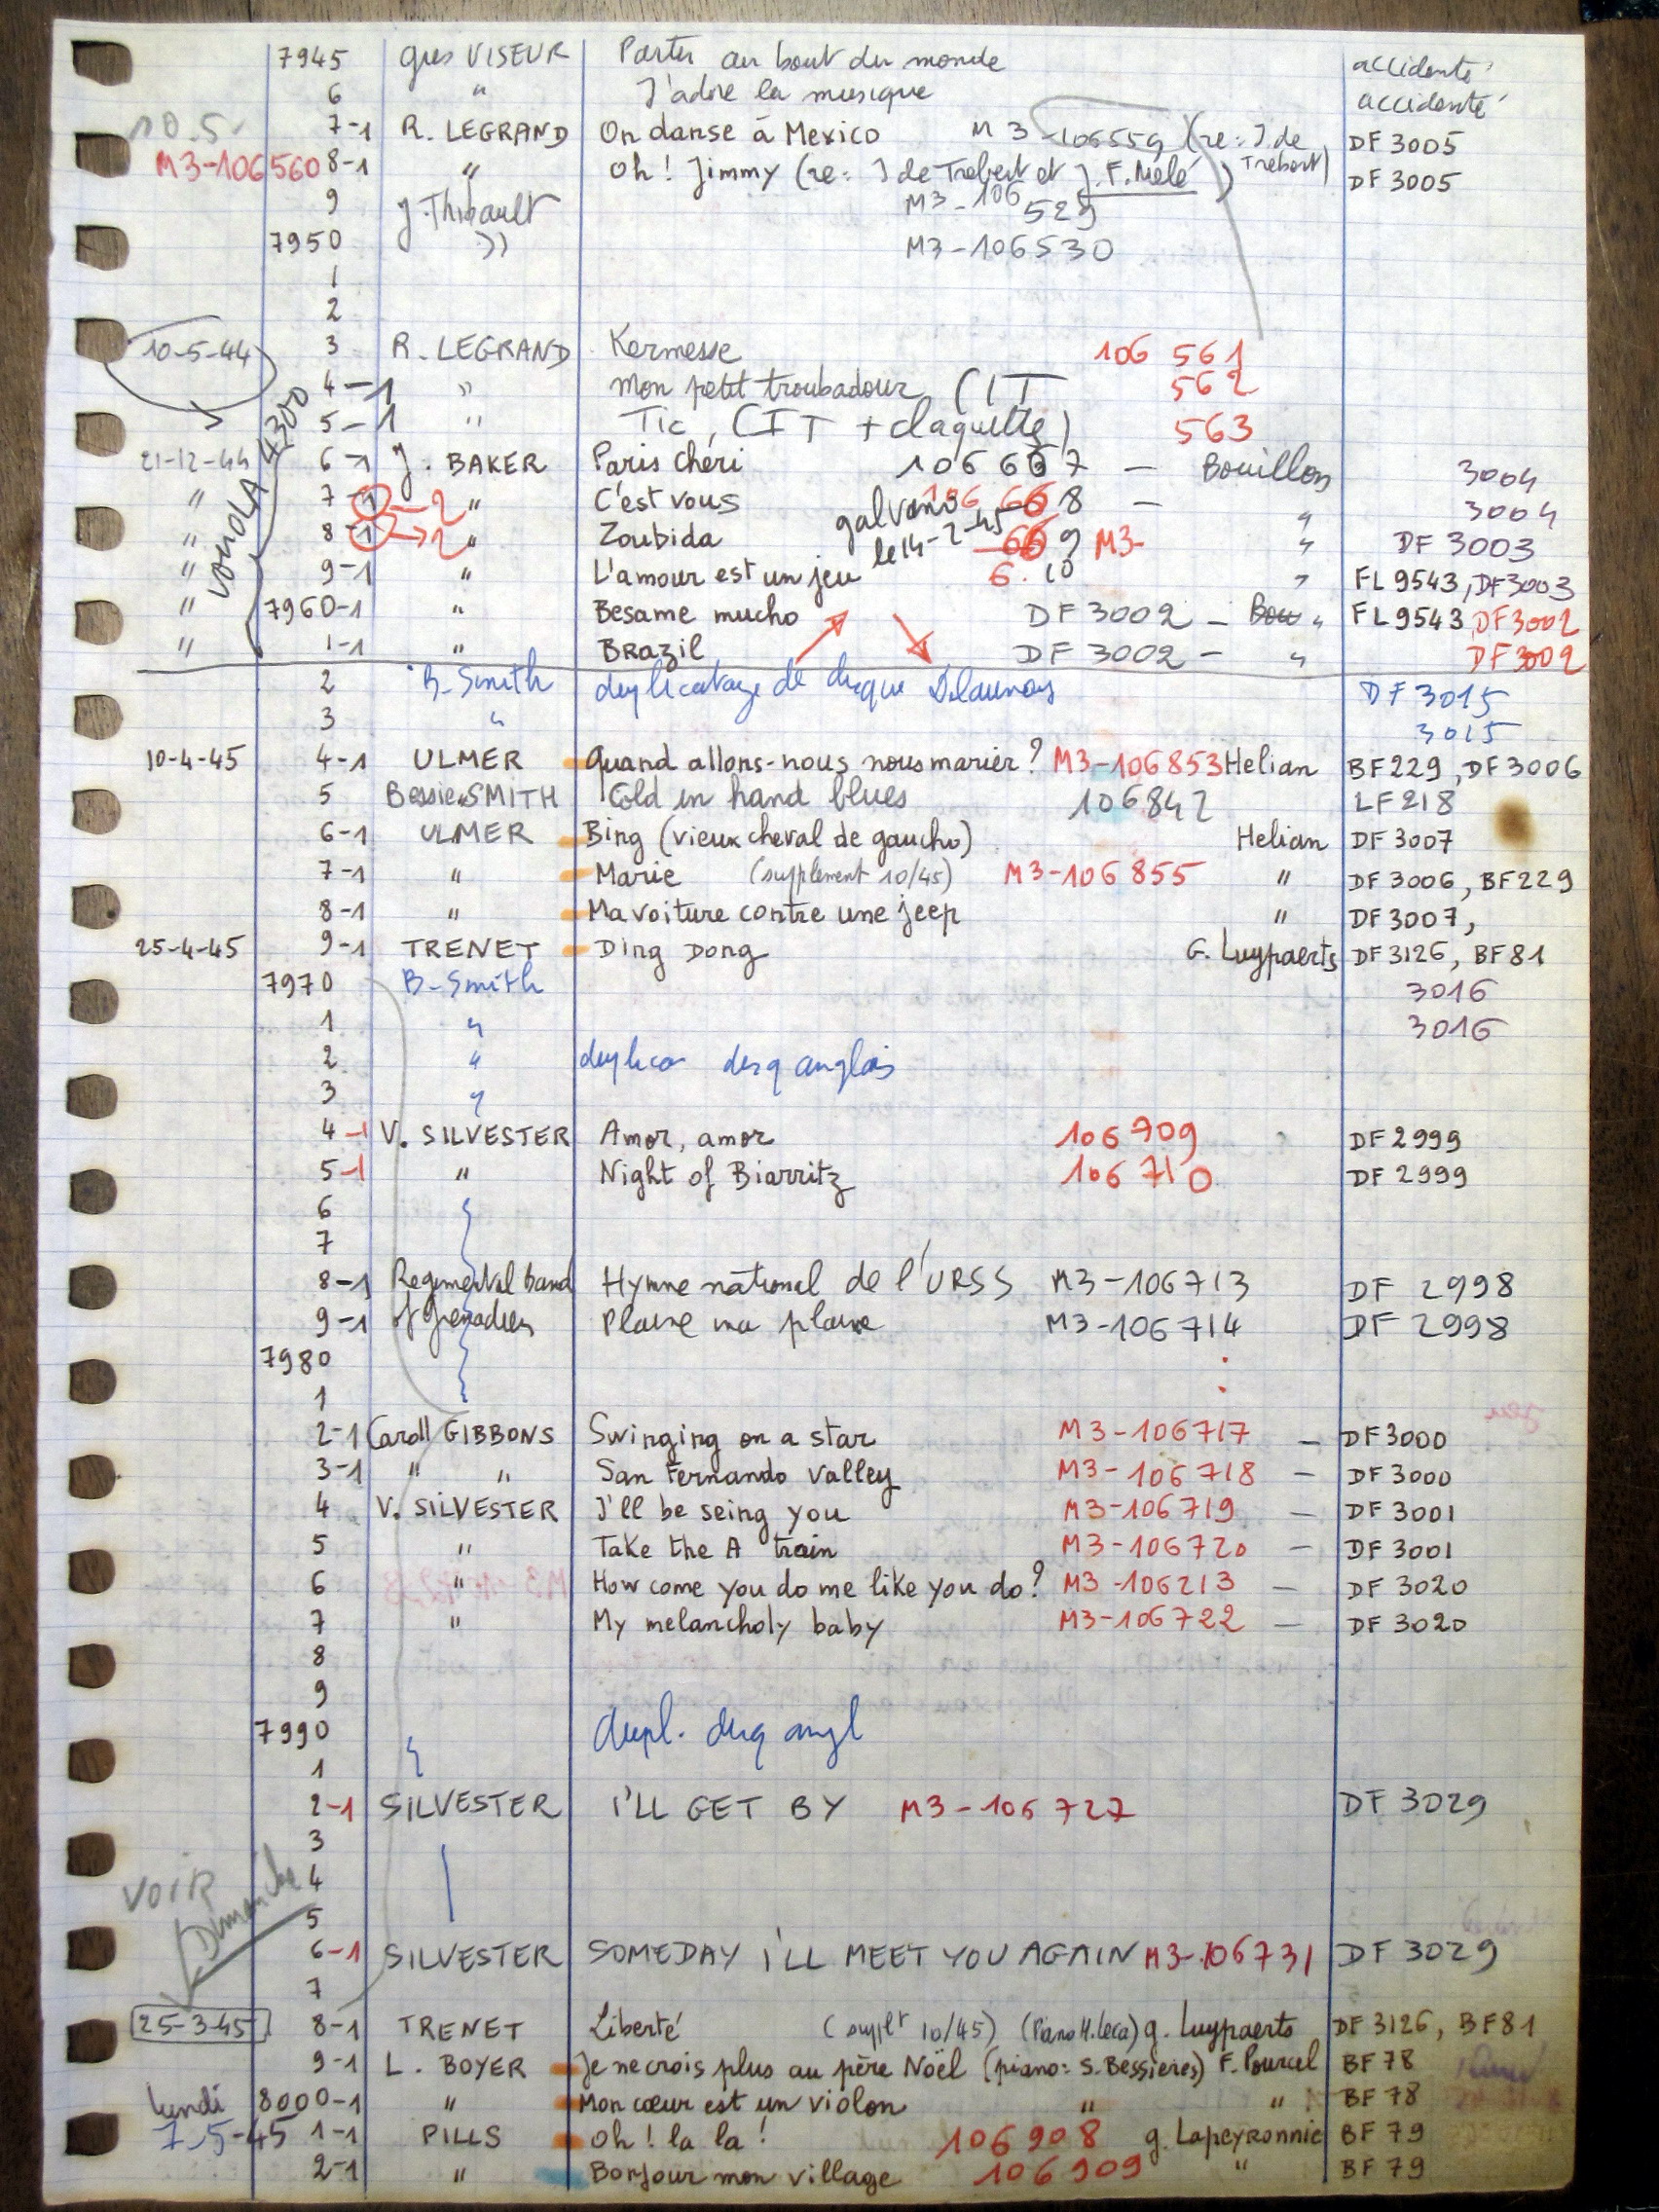 7945 Gus VISEUR Partir au bout du monde accidenté
6 " J'adore la musique accidenté
10.5 7-1 R. LEGRAND On danse à Mexico M3-106559 (re: J. de Trébert) DF 3005
M3-106560 8-1 " Oh! Jimmy (re: J de Trebert et J.F. Mélé) DF 3005
9 J. Thibault M3-106 529
7950 )) M3-106530
1
2
10-5-44 3 R. LEGRAND Kermesse 106 561
4-1 " Mon petit troubadour (IT 562
5-1 " Tic, (IT + claquette) 563
21-12-44 6-1 J. BAKER Paris chéri 106 667 — Bouillon 3004
" 7-1 -2 " C'est vous 106 668 — " 3004
" 8-1 → 2 " Zoubida galvano le 14-2-45 669 M3- " DF 3003
" 9-1 " L'amour est un jeu 6.10 " FL 9543, DF3003
" 7960-1 " Besame mucho DF 3002 — Bou " FL 9543, DF3002
" 1-1 " Brazil DF 3002 — " DF 3002
2 B. Smith duplicatage de disque Delaunay DF 3015
3 " 3015
10-4-45 4-1 ULMER Quand allons-nous nous marier? M3-106853 Helian BF229, DF3006
5 Bessie SMITH Cold in hand blues 106842 LF 218
6-1 ULMER Bing (vieux cheval de gaucho) Helian DF 3007
7-1 " Marie (supplement 10/45) M3-106855 " DF 3006, BF229
8-1 " Ma voiture contre une jeep " DF 3007,
25-4-45 9-1 TRENET Ding Dong G. Luypaerts DF 3126, BF 81
7970 B-Smith 3016
1 " 3016
2 " duplica disq anglais
3 "
4-1 V. SILVESTER Amor, amor 106709 DF 2999
5-1 " Night of Biarritz 106 710 DF 2999
6
7
8-1 Regimental band Hymne national de l'URSS M3-106713 DF 2998
9-1 of Grenadiers Plaine ma plaine M3-106714 DF 2998
7980
1
2-1 Caroll GIBBONS Swinging on a star M3-106717 — DF3000
3-1 " " San Fernando Valley M3-106718 — DF 3000
4 V. SILVESTER I'll be seing you M3-106719 — DF 3001
5 " Take the A train M3-106720 — DF 3001
6 " How come you do me like you do? M3-106213 — DF 3020
7 " My melancholy baby M3-106722 — DF 3020
8
9
7990 dupl. disq angl
1
2-1 SILVESTER I'LL GET BY M3-106727 DF 3029
3
VOIR 4
Dimanche 5
6-1 SILVESTER SOMEDAY I'LL MEET YOU AGAIN M3-106731 DF 3029
7
25-3-45 8-1 TRENET Liberté (supplt 10/45) (Piano H. Leca) G. Luypaerts DF 3126, BF 81
9-1 L. BOYER Je ne crois plus au père Noël (piano: S. Bessieres) F. Pourcel BF 78
lundi 8000-1 " Mon cœur est un violon " " BF 78
7-5-45 1-1 PILLS Oh! la la! 106908 G. Lapeyronnie BF 79
2-1 " Bonjour mon village 106909 " BF 79
VOROLA 4300